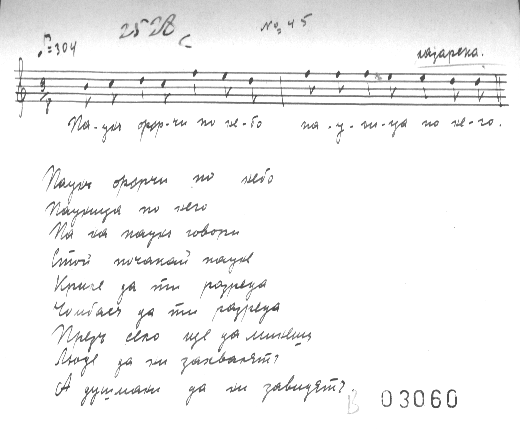 2528 № 45
♪=304
лазарска.
Па-унъ фър-чи по не-бо па-у-ни-ца по не-го.
Паунъ фърчи по небо
Пауница по него
Па на паунъ говори
Стой почакай пауне
Криле да ти разреда
Чомбасъ да ти разреда
Презъ село ще да минешъ
Люде да ни захвалятъ
А душмани да ни завидятъ.
В 03060